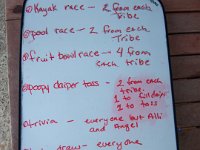 Kayak race - 2 from each
Tribe
pool race - 2 from each
Tribe
fruit bowl race - 4 from
Each tribe
poopy daiper toss - 2 from each
tribe.
1 to
1 to toss
trivia - everyone but Alli
and Angel
draw - everyone